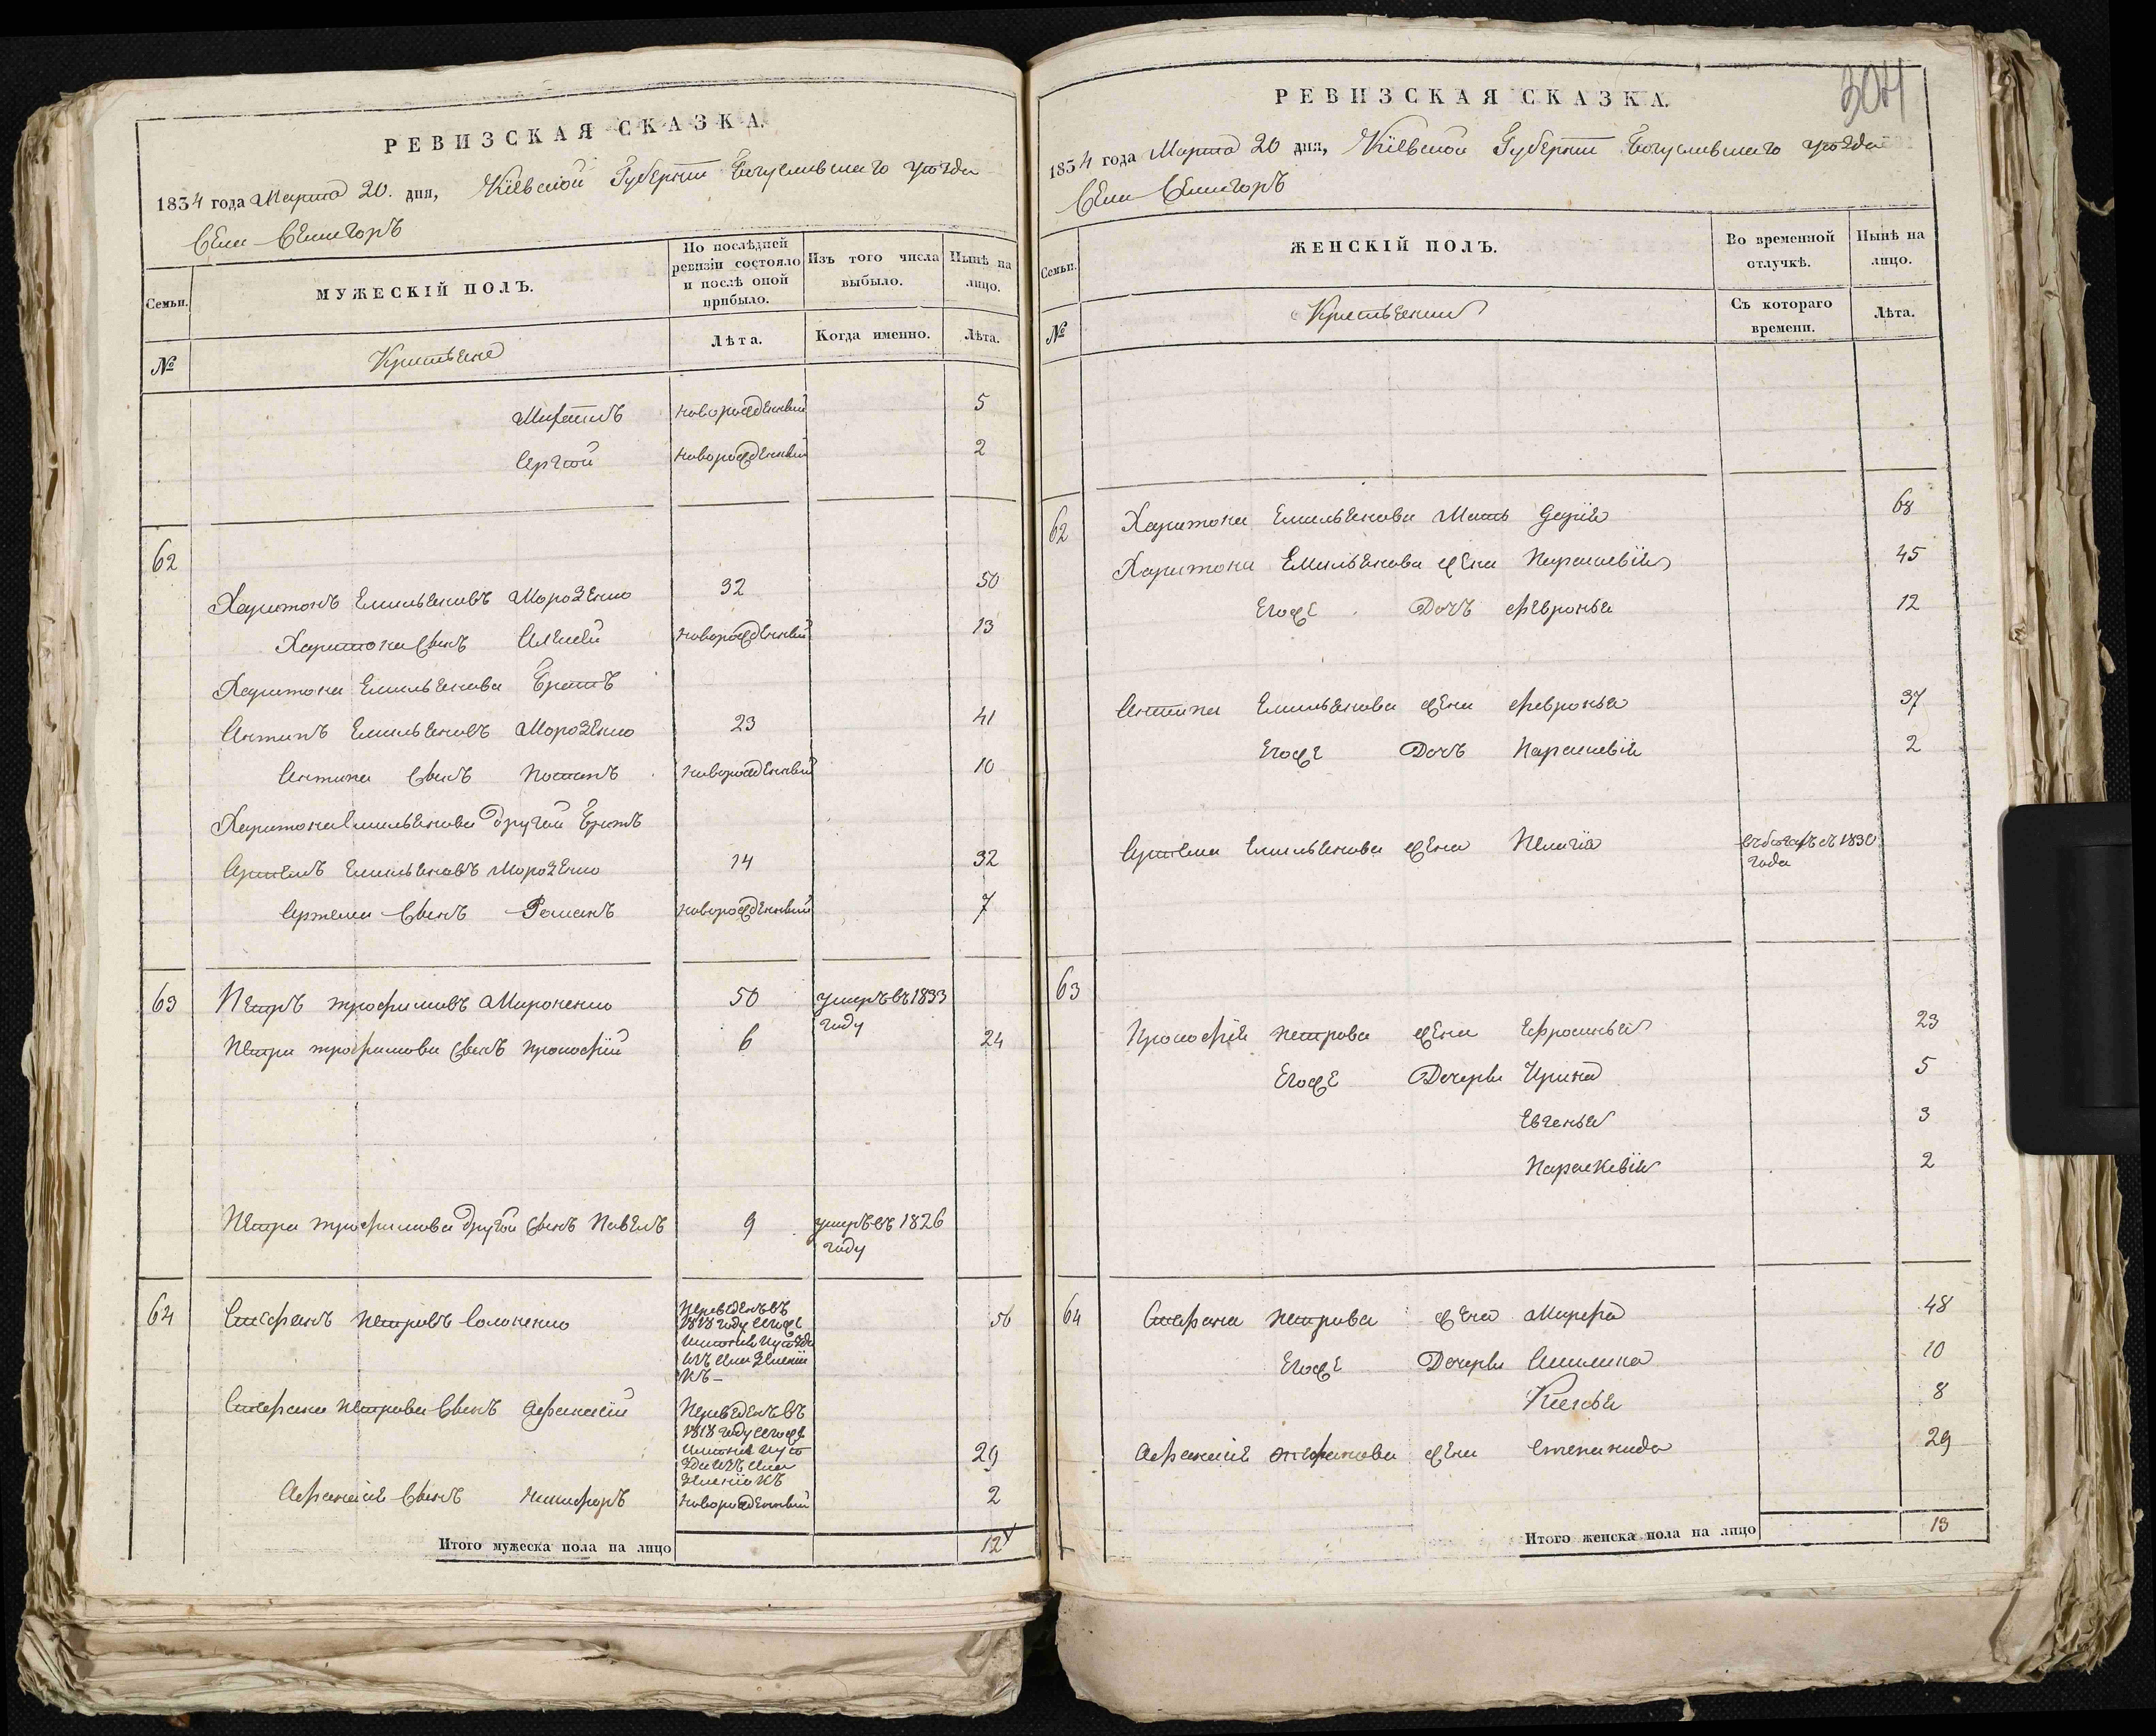 РЕВИЗСКАЯ СКАЗКА.
1834 года Марта 20. дня, Кіевской Губерніи Богуславскаго уѣзда
Села Селигоръ
Семьи.
МУЖЕСКІЙ ПОЛЪ.
По послѣдней ревизіи состояло и послѣ оной прибыло.
Изъ того числа выбыло.
Нынѣ на лицо.
№
Крестьяне
Лѣта.
Когда именно.
Лѣта.
Мартинъ новорожденный 5
Сергѣй новорожденный 2
62
Харитонъ Емельяновъ Мороzенко 32 50
Харитона Сынъ Алексѣй новорожденный 13
Харитона Емельянова Братъ
Антипъ Емельяновъ Мороzенко 23 41
Антипа Сынъ Потапъ новорожденный 10
Харитона Емельянова другой Братъ
Артемъ Емельяновъ Мороzенко 14 32
Артема Сынъ Романъ новорожденный 7
63 Петръ трофимовъ Мироненко 50 умеръ въ 1833 году
Петра трофимова Сынъ Прокофій 6 24
Петра трофимова другой Сынъ Павелъ 9 умеръ въ 1826 году
64 Стефанъ Петровъ Соломенко Переведенъ въ 1818 году 56
Стефана Петрова Сынъ Афанасій Переведенъ въ 1818 году 29
Афанасія Сынъ Никифоръ новорожденный 2
Итого мужеска пола на лицо 12
304
РЕВИЗСКАЯ СКАЗКА.
1834 года Марта 20 дня, Кіевской Губерніи Богуславскаго уѣзда
Села Селигоръ
Семьи.
ЖЕНСКІЙ ПОЛЪ.
Во временной отлучкѣ.
Нынѣ на лицо.
№
Крестьянки
Съ котораго времени.
Лѣта.
62 Харитона Емельянова Мать Дарія 68
Харитона Емельянова жена Параскевія 45
Егоже Дочь Февронья 12
Антипа Емельянова жена Февронья 37
Егоже Дочь Параскевія 2
Артема Емельянова жена Пелагія въ бѣгахъ съ 1830 года
63
Прокофія Петрова жена Ефросинья 23
Егоже Дочеры Ирина 5
Евгенья 3
Параскевія 2
64 Стефана Петрова жена Марфа 48
Егоже Дочеры Акилина 10
Ксенья 8
Афанасія Стефанова жена Степанида 29
Итого женска пола на лицо 13